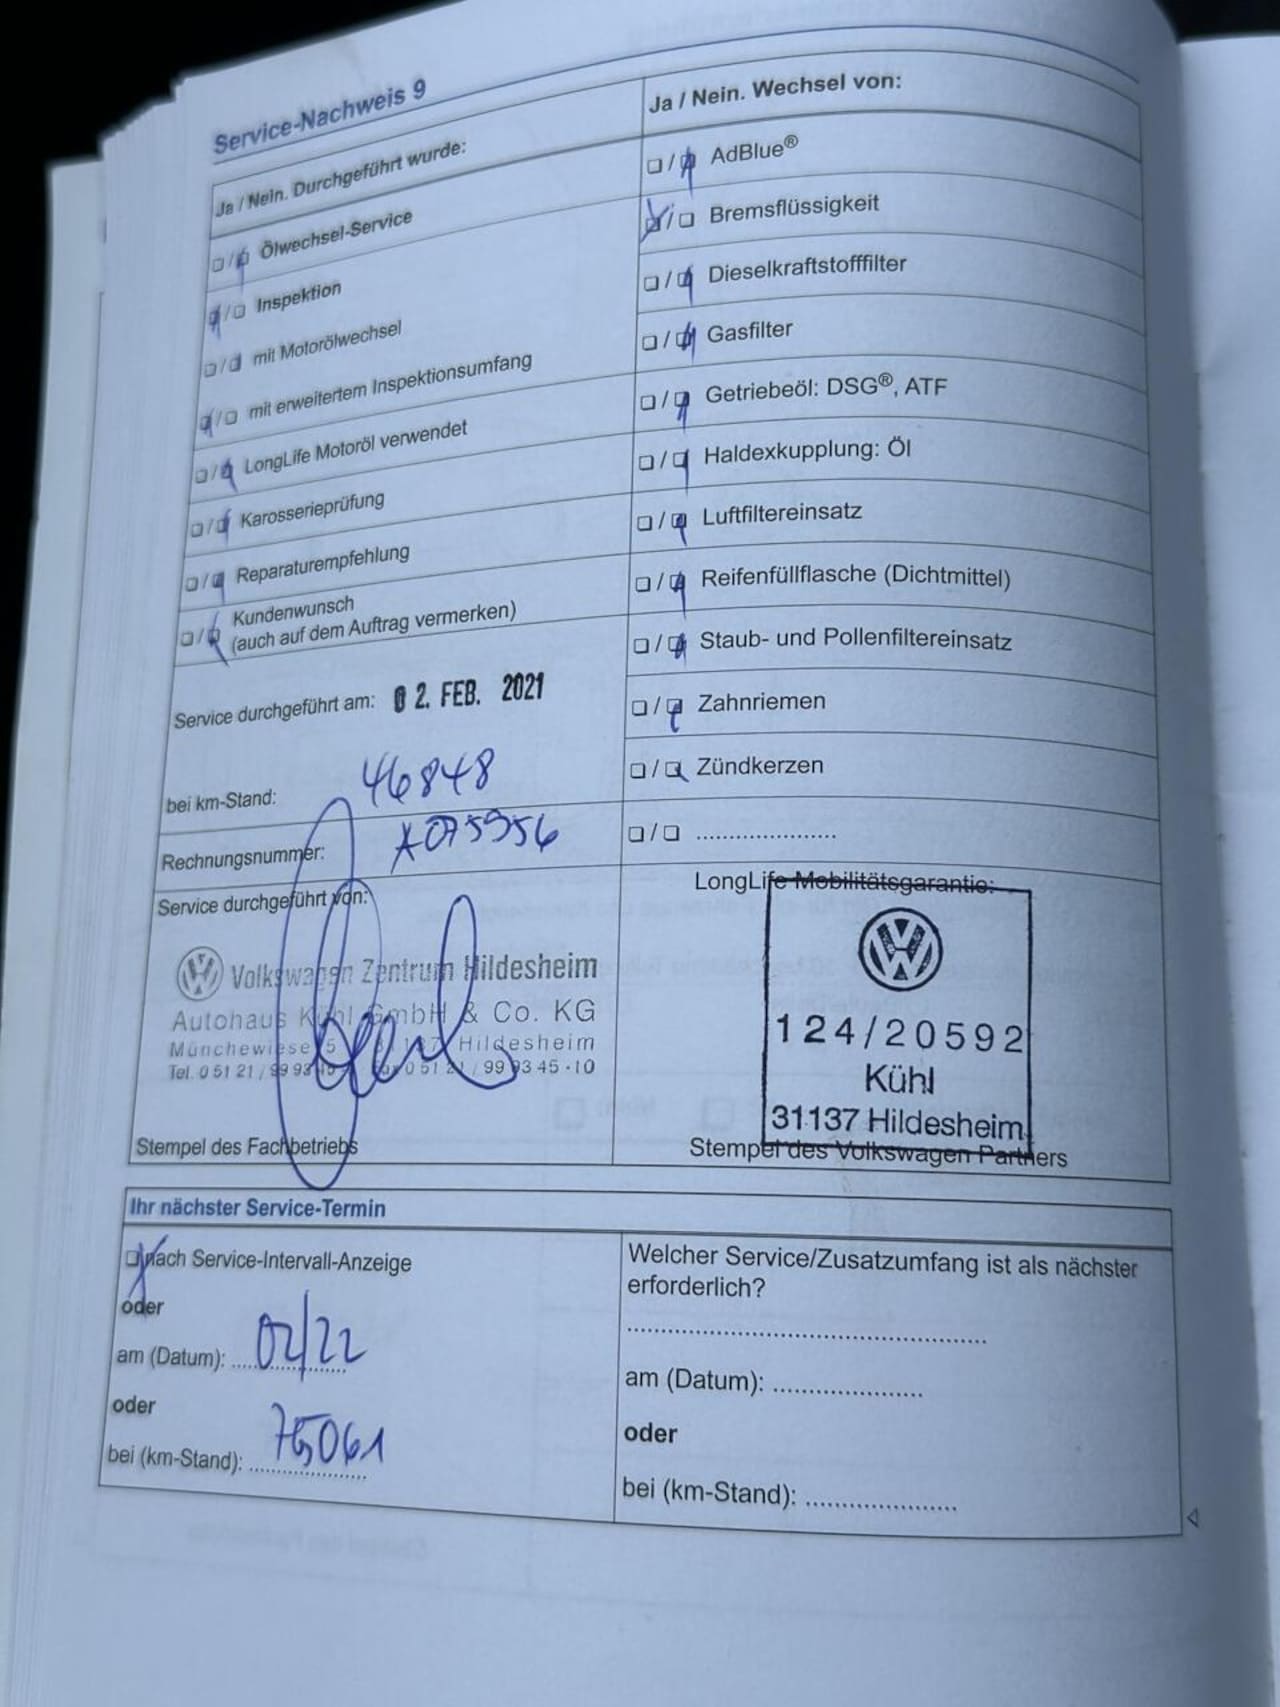 Service-Nachweis 9
Ja / Nein. Durchgeführt wurde:
Ölwechsel-Service
Inspektion
mit Motorölwechsel
mit erweitertem Inspektionsumfang
LongLife Motoröl verwendet
Karosserieprüfung
Reparaturempfehlung
Kundenwunsch
(auch auf dem Auftrag vermerken)
Service durchgeführt am: 02. FEB. 2021
bei km-Stand: 46848
Rechnungsnummer:
Service durchgeführt von:
Volkswagen Zentrum Hildesheim
Autohaus Kühl GmbH & Co. KG
Münchewiese 5 31137 Hildesheim
Tel. 0 51 21 / 99 93 Fax 0 51 21 / 99 93 45 - 10
Stempel des Fachbetriebs
Ja / Nein. Wechsel von:
AdBlue®
Bremsflüssigkeit
Dieselkraftstofffilter
Gasfilter
Getriebeöl: DSG®, ATF
Haldexkupplung: Öl
Luftfiltereinsatz
Reifenfüllflasche (Dichtmittel)
Staub- und Pollenfiltereinsatz
Zahnriemen
Zündkerzen
LongLife Mobilitätsgarantie:
124/20592
Kühl
31137 Hildesheim
Stempel des Volkswagen Partners
Ihr nächster Service-Termin
nach Service-Intervall-Anzeige
oder
am (Datum): 02/22
oder
bei (km-Stand): 75061
Welcher Service/Zusatzumfang ist als nächster
erforderlich?
am (Datum):
oder
bei (km-Stand):